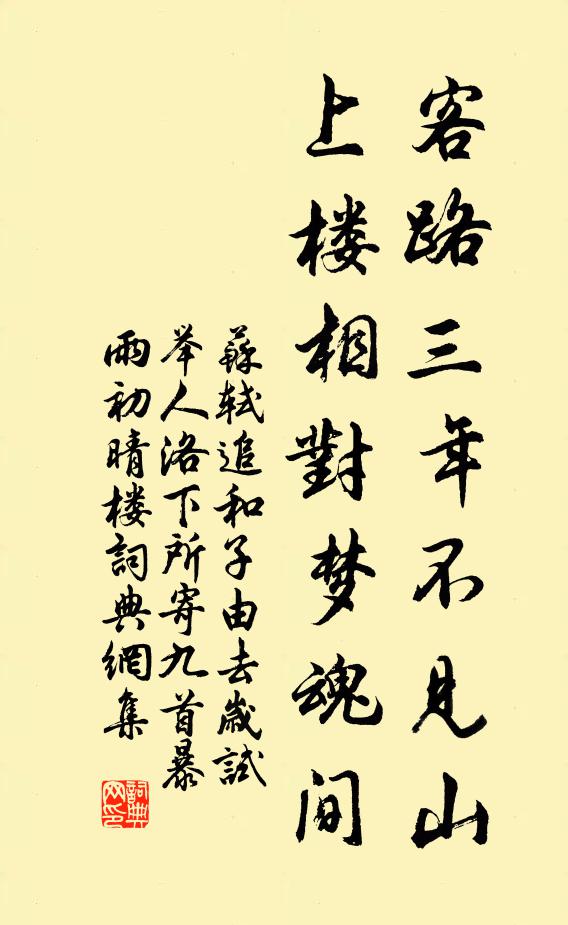 客路三年不见山
上楼相對梦魂间
蘇轼追和子由去歲試
举人洛下所寄九首暴
雨初晴楼詞典網集
詞典
网印